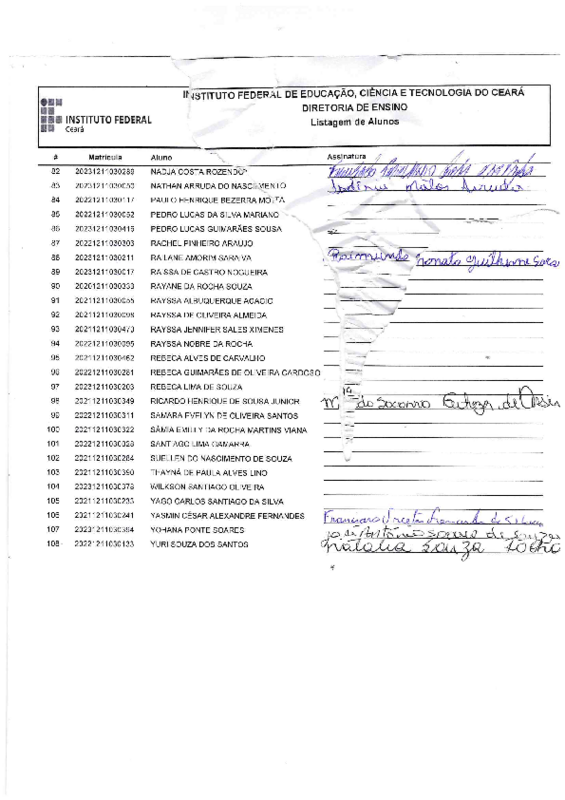 INSTITUTO FEDERAL DE EDUCAÇÃO, CIÊNCIA E TECNOLOGIA DO CEARÁ
DIRETORIA DE ENSINO
Listagem de Alunos
INSTITUTO FEDERAL
Ceará
# Matrícula Aluno Assinatura
82 20231211030289 NADJA COSTA ROZENDO
83 NATHAN ARRUDA DO NASCIMENTO
84 20231211030117 PAULO HENRIQUE BEZERRA MOTA
85 PEDRO LUCAS DA SILVA MARIANO
86 PEDRO LUCAS GUIMARÃES SOUSA
87 RACHEL PINHEIRO ARAUJO
88 RAILANE AMORIM SARAIVA Raimundo Nonato Guilherme
89 20231211030017 RAISSA DE CASTRO NOGUEIRA
90 RAYANE DA ROCHA SOUZA
91 RAYSSA ALBUQUERQUE ACACIO
92 RAYSSA DE OLIVEIRA ALMEIDA
93 RAYSSA JENNIFER SALES XIMENES
94 RAYSSA NOBRE DA ROCHA
95 20211211030462 REBECA ALVES DE CARVALHO
96 20221211030281 REBECA GUIMARÃES DE OLIVEIRA CARDOSO
97 20221211030203 REBECA LIMA DE SOUZA
98 20211211030349 RICARDO HENRIQUE DE SOUSA JUNIOR Mª do Socorro
99 20221211030311 SAMARA EVELYN DE OLIVEIRA SANTOS
100 20221211030322 SÂMIA EMILLY DA ROCHA MARTINS VIANA
101 SANTIAGO LIMA GAMARRA
102 20231211030284 SUELLEN DO NASCIMENTO DE SOUZA
103 20211211030390 THAYNÁ DE PAULA ALVES LINO
104 WILKSON SANTIAGO OLIVEIRA
105 20231211030233 YAGO CARLOS SANTIAGO DA SILVA
106 20211211030241 YASMIN CÉSAR ALEXANDRE FERNANDES
107 20231211030394 YOHANA PONTE SOARES José Antônio Soares de Souza
108 20221211030133 YURI SOUZA DOS SANTOS Natalia Souza Rocha